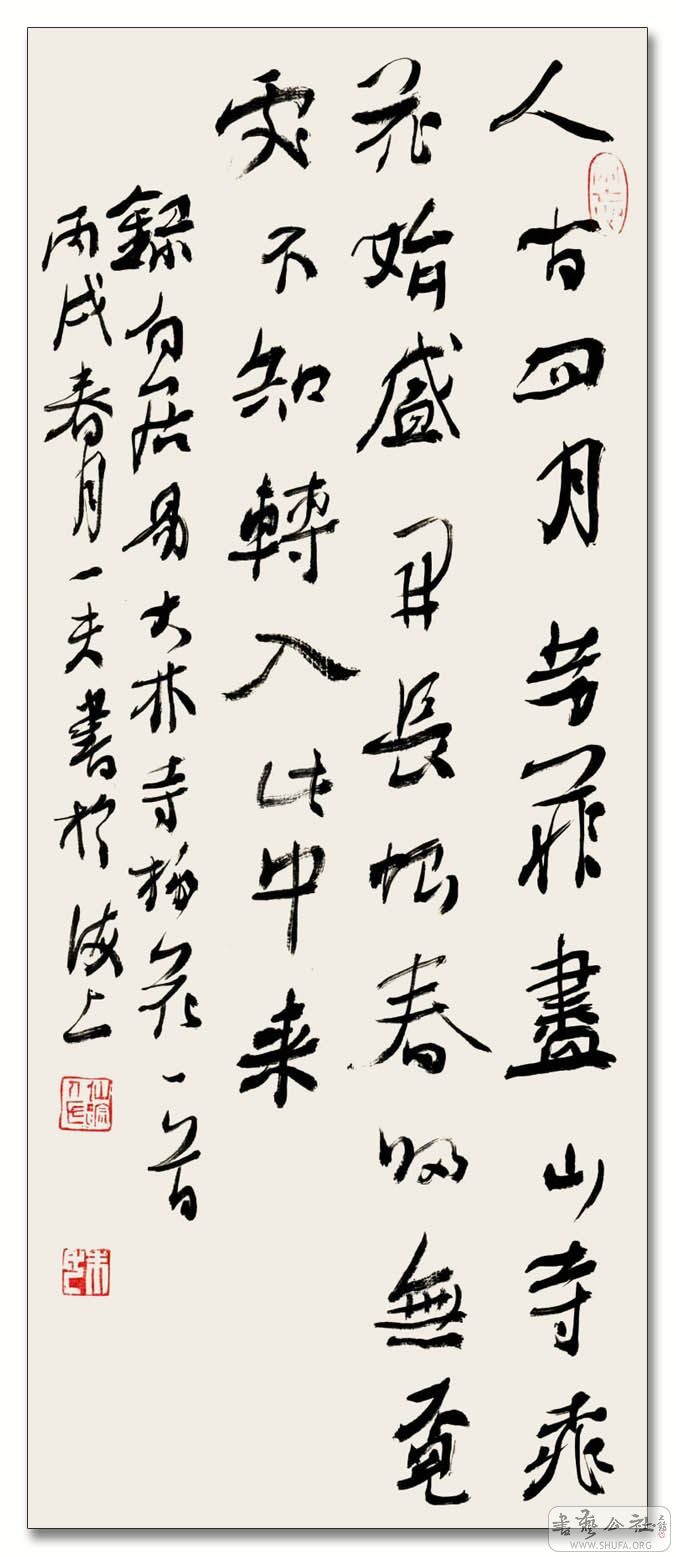 人間四月芳菲盡山寺桃
花始盛開長恨春歸無覓
處不知轉入此中来
錄白居易大林寺桃花一首
丙戌春月一夫書於海上
書藝公社
WWW.SHUFA.ORG